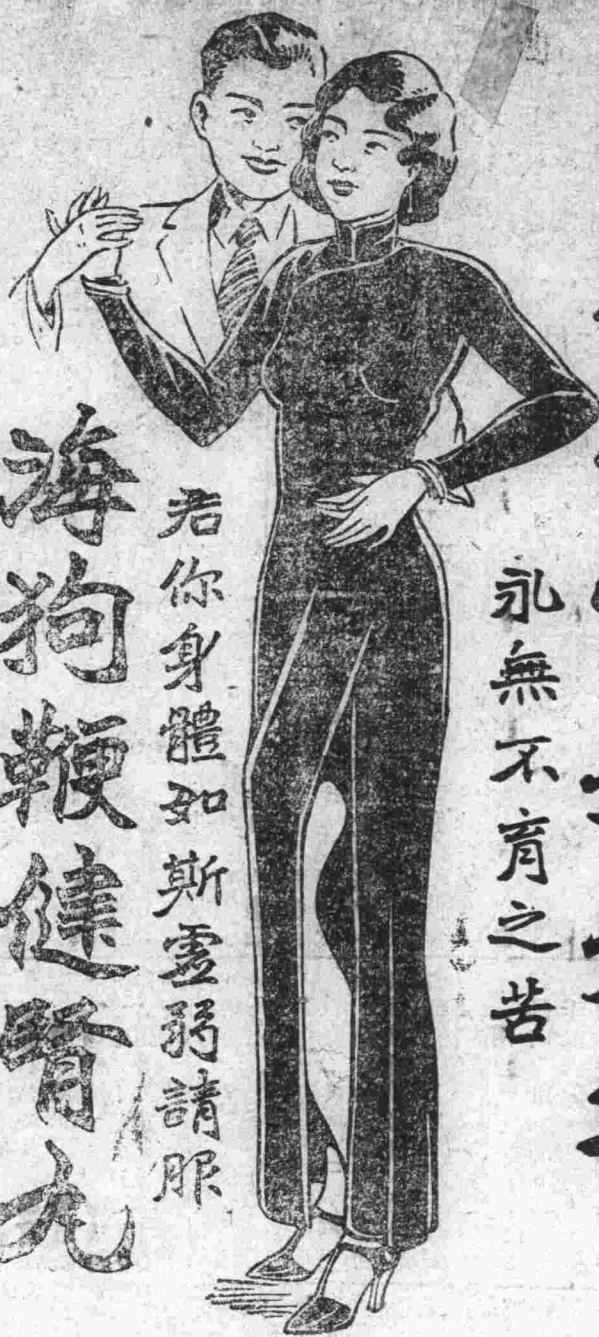 永無不育之苦
若你身體如斯虛弱請服
海狗鞭健腎丸